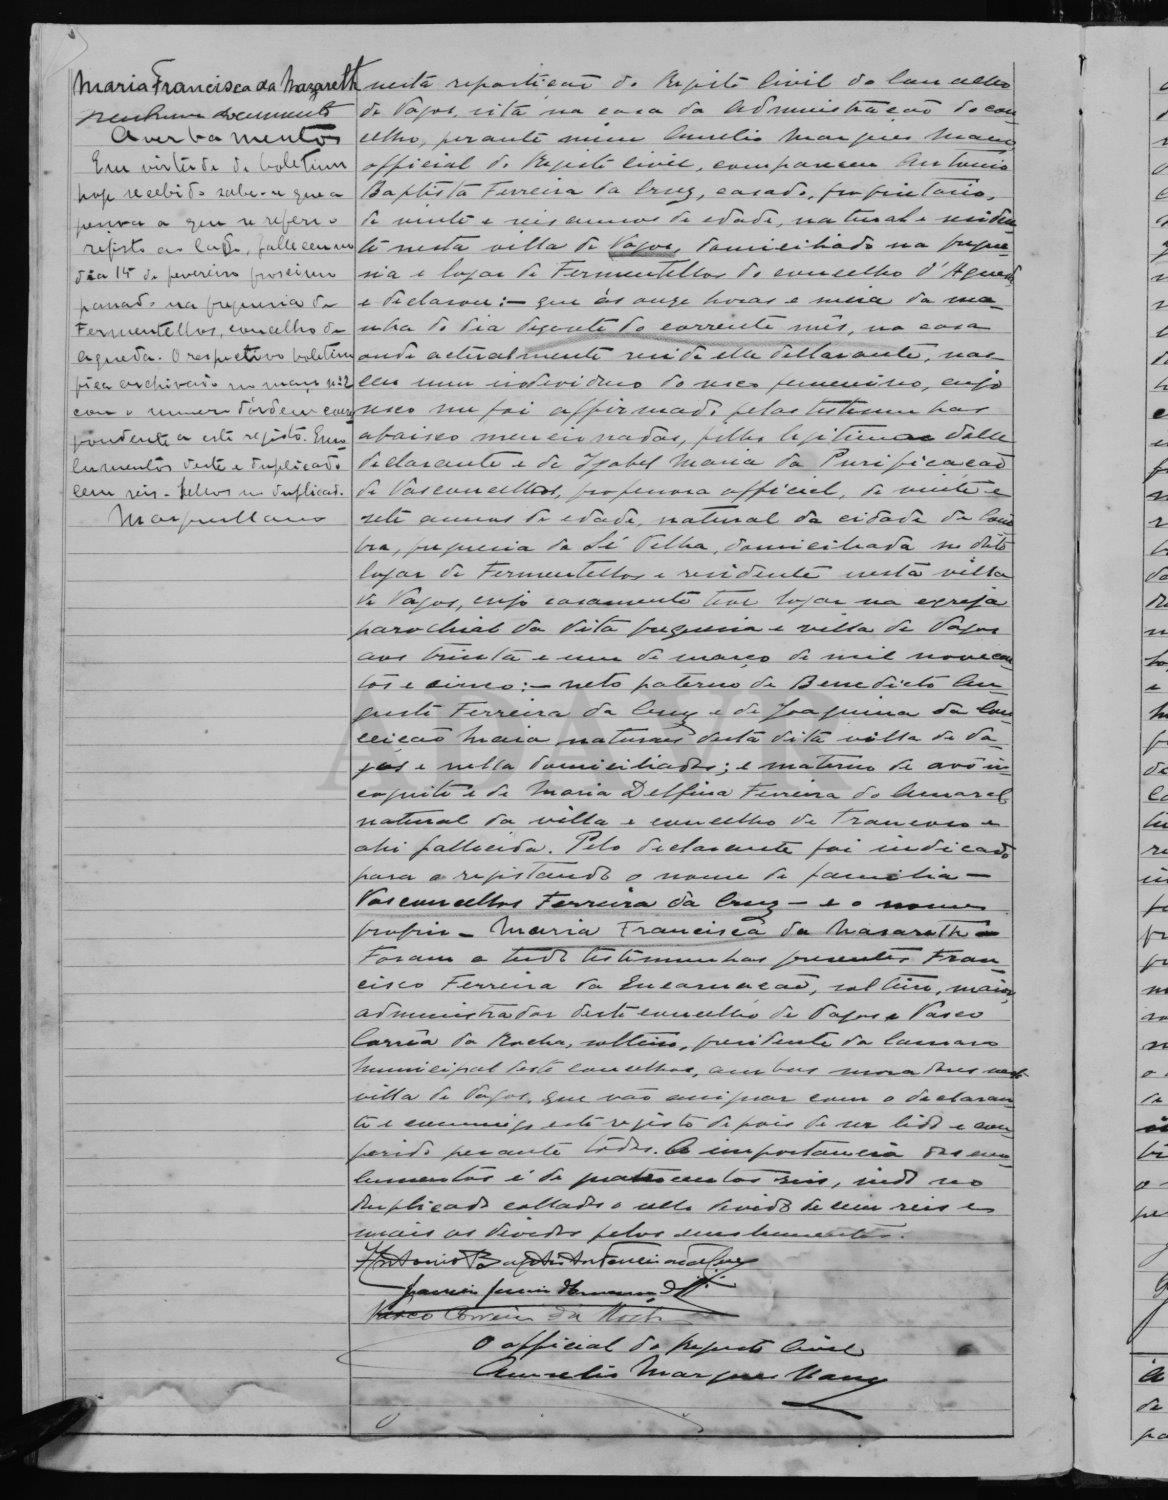 Maria Francisca da Nazareth
Averbamentos
Em virtude de boletim
hoje recebido sabe-se que a
pessoa a que se refere o
registo ao lado, falleceu no
dia 15 de fevereiro proximo
passado na freguesia de
Fermentellos, concelho de
Agueda. O respectivo boletim
fica archivado no maço nº 2
com o numero d'ordem corres
pondente a este registo. Emo
lumentos deste e duplicado
cem reis. Sellos no duplicado.
Marques Mano
nesta repartição do Registo Civil do Concelho
de Vagos, sita na casa da Administração do con
celho, perante mim Aurelio Marques Mano
official do Registo Civil, compareceu Antonio
Baptista Ferreira da Cruz, casado, proprietario,
de vinte e seis annos de edade, natural e residen
te nesta villa de Vagos, domiciliado na fregue
sia e logar de Fermentellos do concelho d'Agueda
e declarou:- que ás onze horas e meia da ma
nhã do dia do corrente mês, na casa
onde actualmente reside elle declarante, nas
ceu um individuo do sexo femenino, cujo
sexo me foi affirmado pelas testemunhas
abaixo mencionadas, filha legitima delle
declarante e de Izabel Maria da Purificação
de Vasconcellos, professora official, de vinte e
sete annos de edade, natural da cidade de Coim
bra, freguesia da Sé Velha, domiciliada no dito
logar de Fermentellos e residente nesta villa
de Vagos, cujo casamento teve logar na egreja
parochial da dita freguesia e villa de Vagos
aos trinta e um de março de mil novecen
tos e cinco:- neto paterno de Benedicto Au
gusto Ferreira da Cruz e de Joaquina da Con
ceição Maia, naturaes desta dita villa de Va
gos e nella domiciliados; e materno de avô in
cognito e de Maria Delfina Ferreira do Amaral
natural da villa e concelho de Trancoso e
ahi fallecida. Pelo declarante foi indicado
para a registanda o nome de familia -
Vasconcellos Ferreira da Cruz - e o nome
proprio - Maria Francisca da Nasareth -
Foram a tudo testemunhas presentes Fran
cisco Ferreira da Encarnação, solteiro, maior,
administrador deste concelho de Vagos e Vasco
Corrêa da Rocha, solteiro, presidente da Camara
Municipal deste concelho, ambos moradores nesta
villa de Vagos, que vão assignar com o declaran
te e commigo este registo depois de ser lido e con
ferido perante todos. A importancia dos emo
lumentos é de quatrocentos reis, indo no
duplicado collado o sello devido de cem reis e
mais os devidos pelos emolumentos.
Antonio Baptista Ferreira da Cruz
Vasco Correia da Rocha
O official do Registo Civil
Aurelio Marques Mano
ADAVR